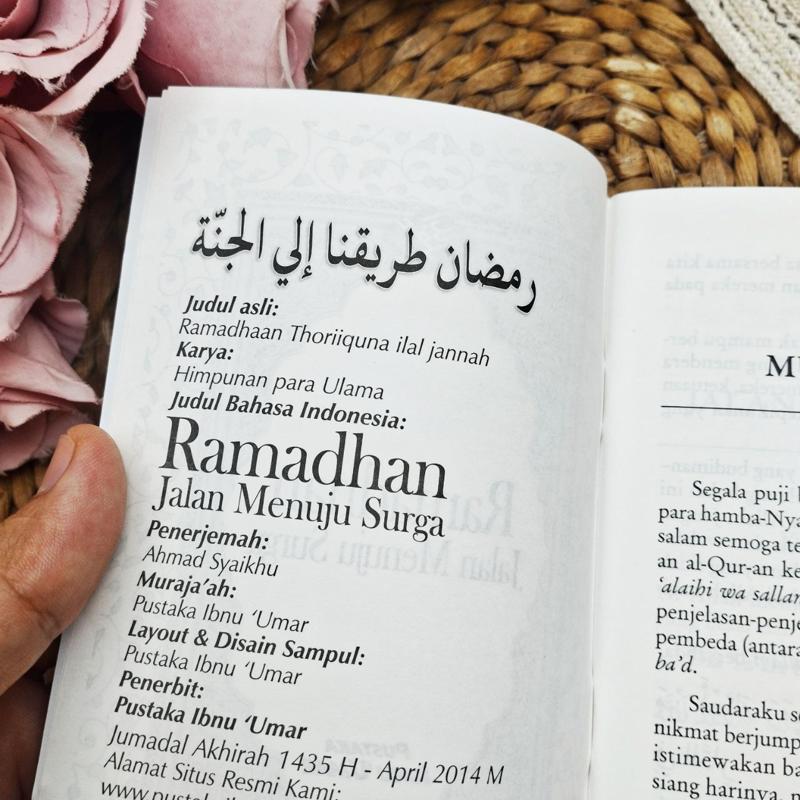 رمضان طريقنا إلي الجنّة
Judul asli:
Ramadhaan Thoriiquna ilal jannah
Karya:
Himpunan para Ulama
Judul Bahasa Indonesia:
Ramadhan
Jalan Menuju Surga
Penerjemah:
Ahmad Syaikhu
Muraja'ah:
Pustaka Ibnu 'Umar
Layout & Disain Sampul:
Pustaka Ibnu 'Umar
Penerbit:
Pustaka Ibnu 'Umar
Jumadal Akhirah 1435 H - April 2014 M
Alamat Situs Resmi Kami:
Segala puji
para hamba-Nya
salam semoga
an al-Qur-an
'alaihi wa sallam
penjelasan-penje
pembeda (antara
ba'd.
Saudaraku
nikmat berjump
istimewakan
siang harinya,